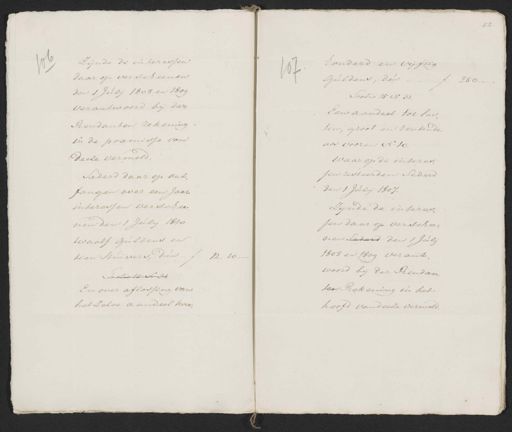 106
Zijnde de interessen
daar op verscheenen
den 1 July 1808 en 1809
verantwoord bij der
Rendanten Rekening
in de praemisse van
deele vermeld.
Sederd daar op ont,
fangen over een Jaar
interessen verschee,
nen den 1 July 1810
twaalf Guldens en
tien Stuivers, dus f 12.10.—
En over aflossing van
het Zelve aandeel twee
107
honderd en vijftig
Guldens, dus f 250.—
Een aandeel
groot en
als vooren N° 10.
Waar op de interes,
sen resteerden Sederd
den 1 July 1807.
Zijnde de interes,
sen daar op verschee,
nen den 1 July
1808 en 1809 verant,
woord bij der Rendan,
ten Rekening in het
hoofd van deele vermeld